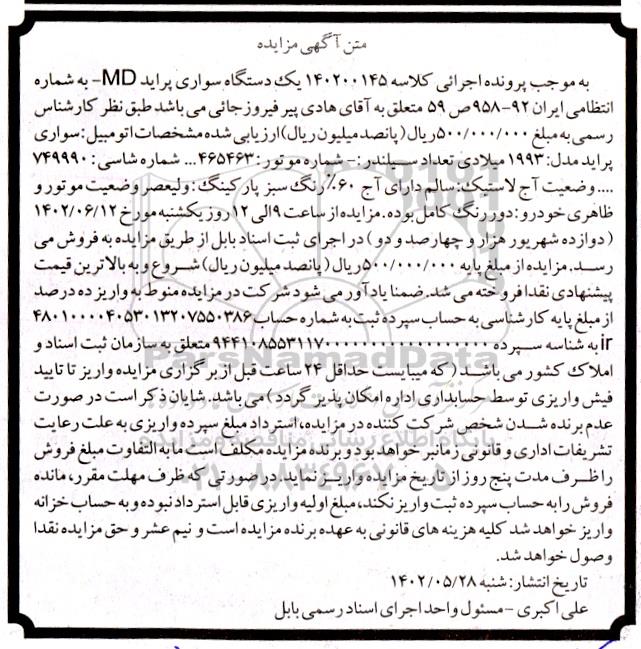 متن آگهی مزایده
به موجب پرونده اجرائی کلاسه ۱۴۰۲۰۰۱۴۵ یک دستگاه سواری پراید MD- به شماره
انتظامی ایران ۹۲-۹۵۸ص ۵۹ متعلق به آقای هادی پیر فیروزجائی می باشد طبق نظر کارشناس
رسمی به مبلغ ۵۰۰/۰۰۰/۰۰۰ریال (پانصد میلیون ریال) ارزیابی شده مشخصات اتومبیل: سواری
پراید مدل: ۱۹۹۳ میلادی تعداد سیلندر:- شماره موتور: ۴۶۵۴۶۳... شماره شاسی: ۷۴۹۹۹۰
....وضعیت آج لاستیک: سالم دارای آج ۶۰٪ رنگ سبز پارکینگ: ولیعصر وضعیت موتور و
ظاهری خودرو: دور رنگ کامل بوده. مزایده از ساعت ۹ الی ۱۲ روز یکشنبه مورخ ۱۴۰۲/۰۶/۱۲
(دوازده شهریور هزار و چهارصد و دو) در اجرای ثبت اسناد بابل از طریق مزایده به فروش می
رسد. مزایده از مبلغ پایه ۵۰۰/۰۰۰/۰۰۰ریال (پانصد میلیون ریال) شروع و به بالاترین قیمت
پیشنهادی نقدا فروخته می شد. ضمنا یادآور می شود شرکت در مزایده منوط به واریز ده درصد
از مبلغ پایه کارشناسی به حساب سپرده ثبت به شماره حساب ۴۸۰۱۰۰۰۰۴۰۵۳۰۱۳۲۰۷۵۵۰۳۸۶
ir به شناسه سپرده
متعلق به سازمان ثبت اسناد و
املاک کشور می باشد (که میبایست حداقل ۲۴ ساعت قبل از برگزاری مزایده واریز تا تایید
فیش واریزی توسط حسابداری اداره امکان پذیر گردد) می باشد. شایان ذکر است در صورت
عدم برنده شدن شخص شرکت کننده در مزایده، استرداد مبلغ سپرده واریزی به علت رعایت
تشریفات اداری و قانونی زمانبر خواهد بود و برنده مزایده مکلف است مابه التفاوت مبلغ فروش
را ظرف مدت پنج روز از تاریخ مزایده واریز نماید. در صورتی که ظرف مهلت مقرر، مانده
فروش را به حساب سپرده ثبت واریز نکند، مبلغ اولیه واریزی قابل استرداد نبوده و به حساب خزانه
واریز خواهد شد کلیه هزینه های قانونی به عهده برنده مزایده است و نیم عشر و حق مزایده نقدا
وصول خواهد شد.
تاریخ انتشار: شنبه ۱۴۰۲/۰۵/۲۸
علی اکبری - مسئول واحد اجرای اسناد رسمی بابل
ParsNamadData
پایگاه اطلاع رسانی مناقصه و مزایده
۰۲۱-۸۸۳۴۹۶۷۰-۵